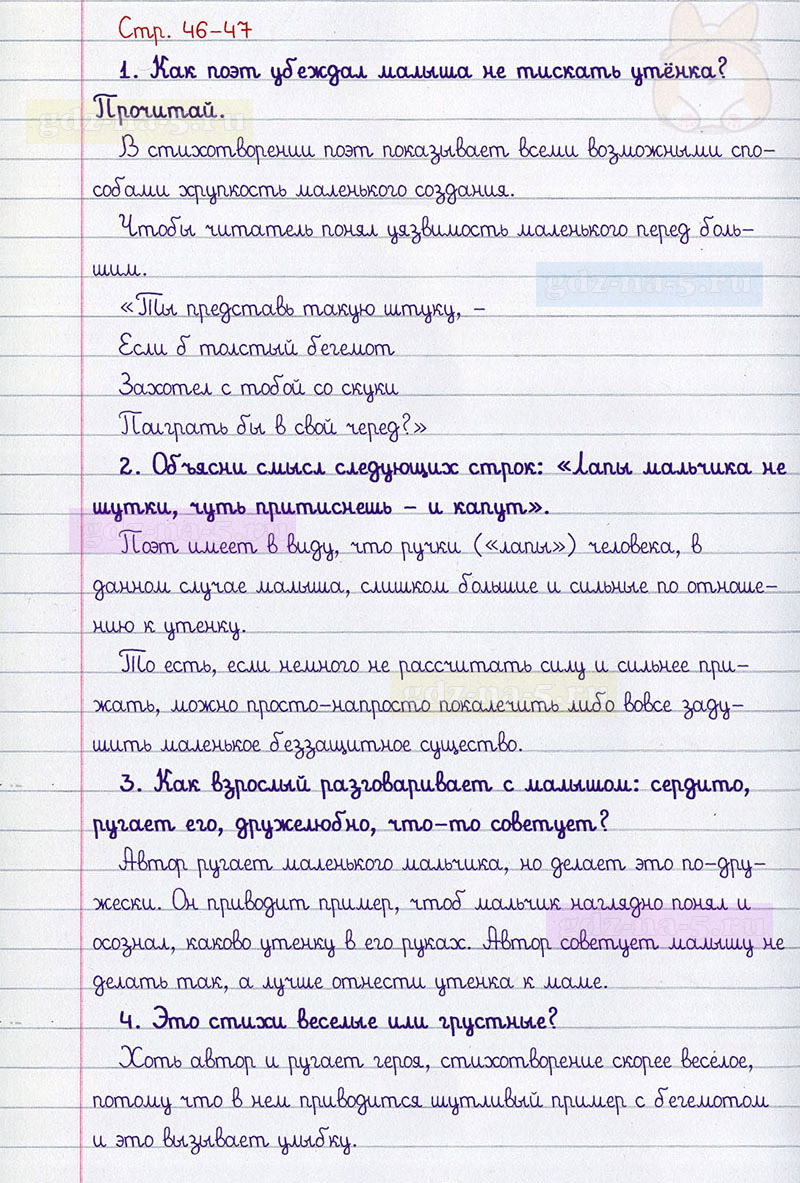 Стр. 46-47
1. Как поэт убеждал малыша не тискать утёнка?
Прочитай.
gdz-na-5.ru
В стихотворении поэт показывает всеми возможными спо-
собами хрупкость маленького создания.
Чтобы читатель понял уязвимость маленького перед боль-
шим.
gdz-na-5.ru
«Ты представь такую штуку, -
Если б толстый бегемот
Захотел с тобой со скуки
Поиграть бы в свой черед?»
2. Объясни смысл следующих строк: «Лапы мальчика не
шутки, чуть притиснешь - и капут».
gdz-na-5.ru
Поэт имеет в виду, что ручки («лапы») человека, в
данном случае малыша, слишком большие и сильные по отноше-
нию к утенку.
То есть, если немного не рассчитать силу и сильнее при-
gdz-na-5.ru
жать, можно просто-напросто покалечить либо вовсе заду-
шить маленькое беззащитное существо.
3. Как взрослый разговаривает с малышом: сердито,
ругает его, дружелюбно, что-то советует?
Автор ругает маленького мальчика, но делает это по-дру-
жески. Он приводит пример, чтоб мальчик наглядно понял и
gdz-na-5.ru
осознал, каково утенку в его руках. Автор советует малышу не
делать так, а лучше отнести утенка к маме.
4. Это стихи веселые или грустные?
Хоть автор и ругает героя, стихотворение скорее весёлое,
потому что в нем приводится шутливый пример с бегемотом
и это вызывает улыбку.